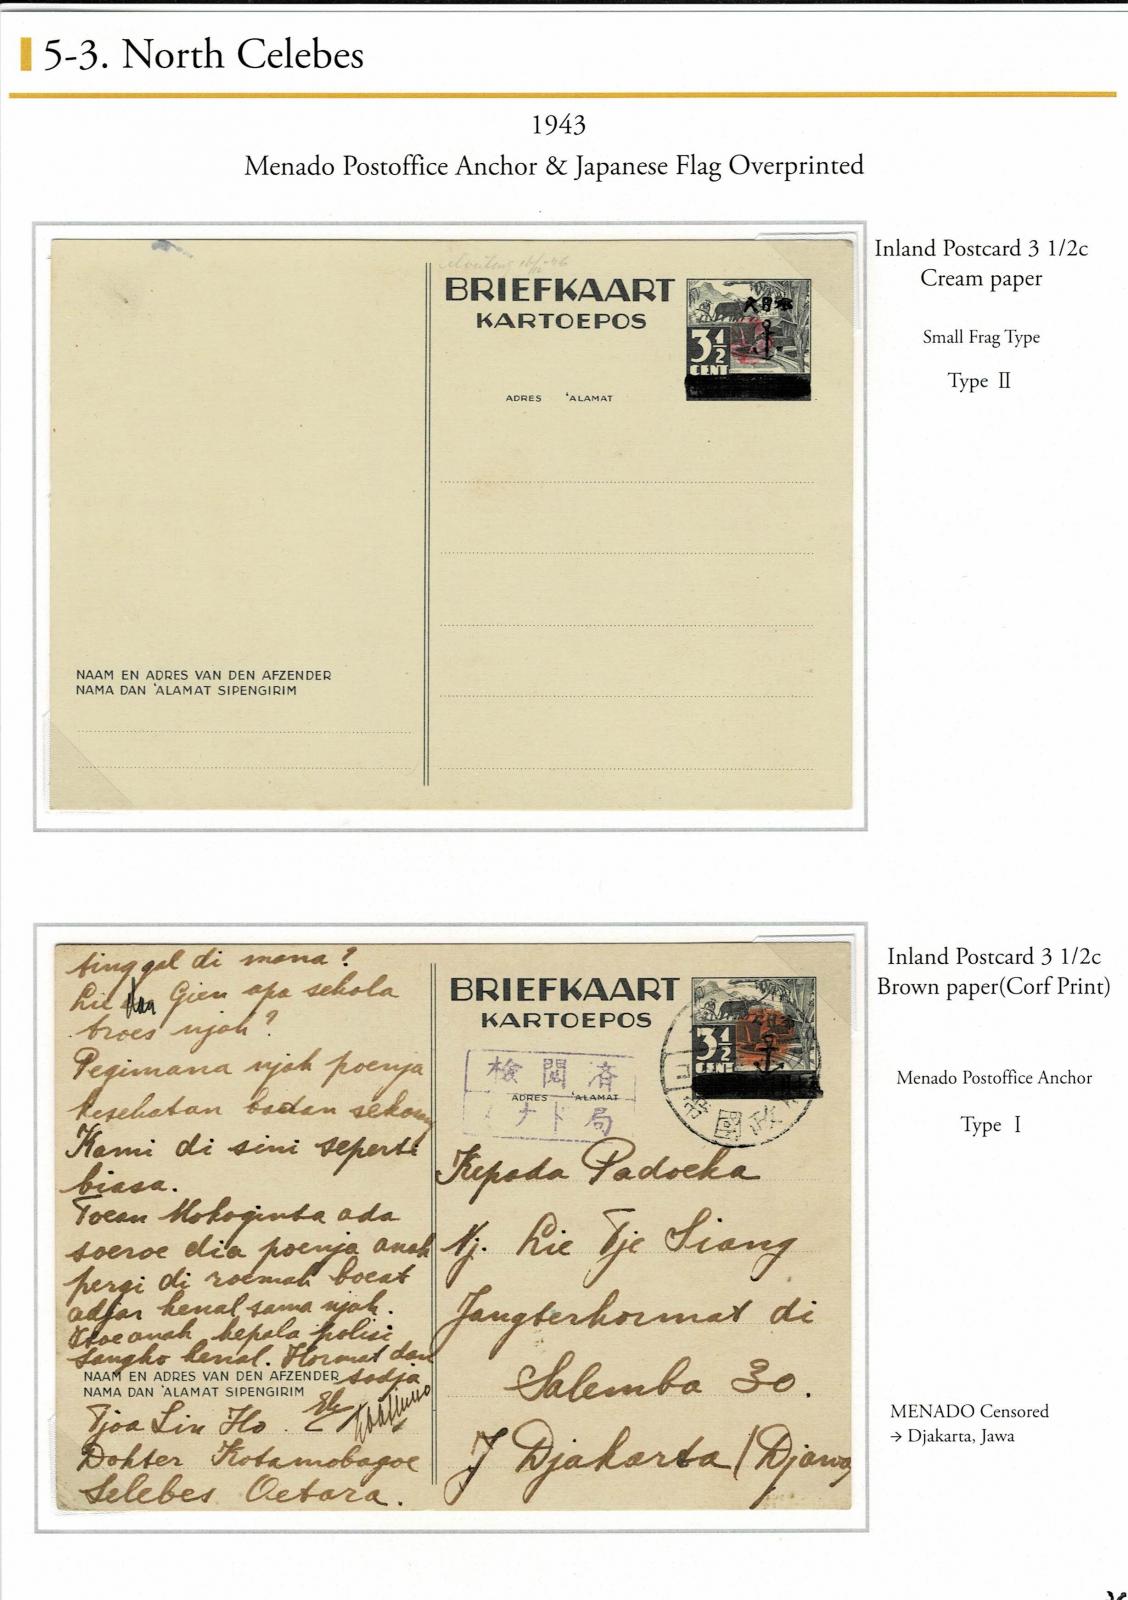 5-3. North Celebes
1943
Menado Postoffice Anchor & Japanese Flag Overprinted
Inland Postcard 3 1/2c
Cream paper
Small Frag Type
Type Ⅱ
BRIEFKAART
KARTOEPOS
3 1/2
CENT
大日本
ADRES ‘ALAMAT
NAAM EN ADRES VAN DEN AFZENDER
NAMA DAN ‘ALAMAT SIPENGIRIM
Inland Postcard 3 1/2c
Brown paper(Corf Print)
Menado Postoffice Anchor
Type Ⅰ
MENADO Censored
→ Djakarta, Jawa
tinggal di mana?
Lie Gien apa sekola
troes njah?
Pegimana njah poenja
kesehatan badan sekong
Kami di sini seperti
biasa.
Toean Mokoginta ada
soeroe dia poenja anak
pergi di roemah boeat
adjar kenal sama njah.
Itoe anak kepala polisi
sangko kenal. Hormat dan
sodja
NAAM EN ADRES VAN DEN AFZENDER
NAMA DAN ‘ALAMAT SIPENGIRIM
Tjoa Lin Ho
Dokter Kotamobagoe
Selebes Oetara.
BRIEFKAART
KARTOEPOS
3 1/2
CENT
検閲済
ナド局
ADRES ‘ALAMAT
Kepada Padoeka
Nj. Lie Tje Siang
Jangterhormat di
Salemba 30.
Djakarta (Djawa